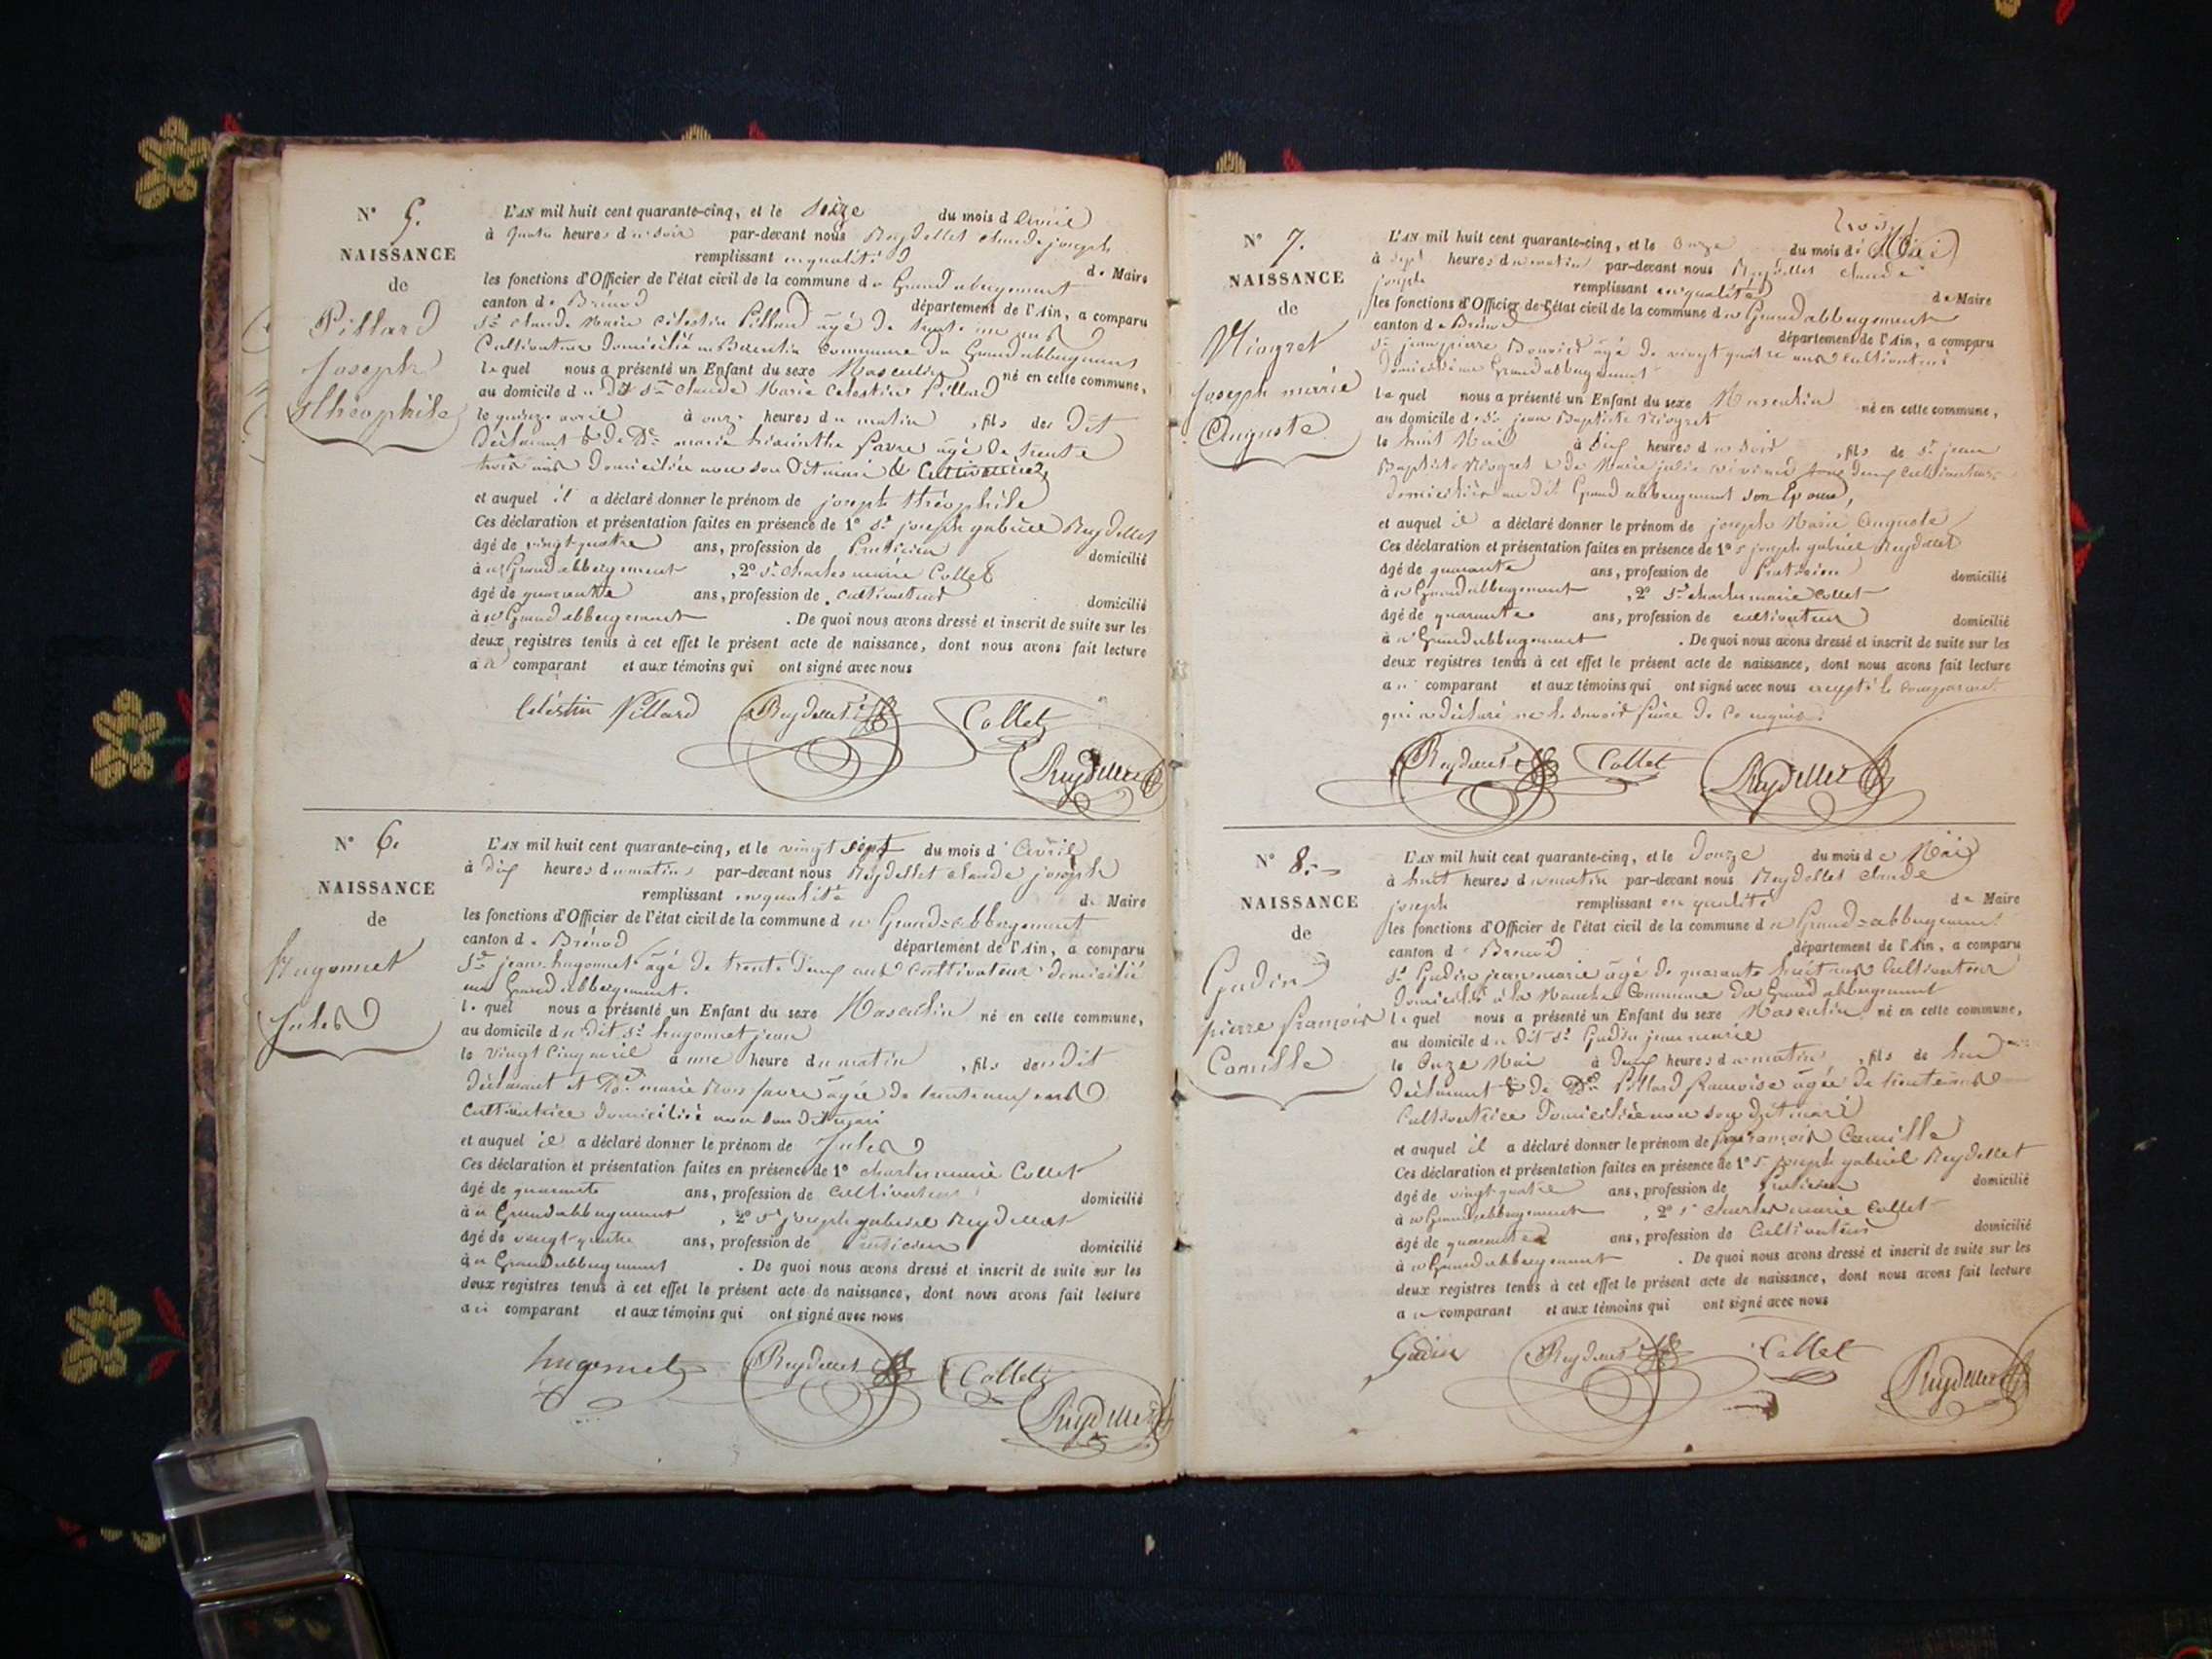 N° 5.
NAISSANCE
de
Pillard
Joseph
théophile
L'AN mil huit cent quarante-cinq, et le seize du mois d'avril
à quatre heures du soir par-devant nous Reydellet claude joseph
remplissant en qualité de Maire
les fonctions d'Officier de l'état civil de la commune du Grand abergement
canton de Brénod département de l'Ain, a comparu
Sr claude Marie Célestin Pilland âgé de trente un ans
Cultivateur domicilié au Commune du Grand abbergement
lequel nous a présenté un Enfant du sexe Masculin né en cette commune,
au domicile du dit Sr claude Marie Celestin Pillard
le quinze avril à onze heures du matin, fils des dit
déclarant & de De marie hiacinthe favre âgé de trente
trois ans domiciliée avec son dit mari & Cultivatrice
et auquel il a déclaré donner le prénom de joseph théophile
Ces déclaration et présentation faites en présence de 1° Sr joseph gabriel Reydellet
âgé de vingt-quatre ans, profession de Praticien domicilié
à Grand abbergement, 2° Sr Charles marie Collet
âgé de quarante ans, profession de cultivateur domicilié
au Grand abbergement. De quoi nous avons dressé et inscrit de suite sur les
deux registres tenus à cet effet le présent acte de naissance, dont nous avons fait lecture
au comparant et aux témoins qui ont signé avec nous
Célestin Pillard Reydellet Collet
Reydellet
N° 6.
NAISSANCE
de
hugonnet
Jules
L'AN mil huit cent quarante-cinq, et le vingt sept du mois d'Avril
à dix heures du matin par-devant nous Reydellet claude joseph
remplissant en qualité de Maire
les fonctions d'Officier de l'état civil de la commune du Grand-abbergement
canton de Brénod département de l'Ain, a comparu
Sr jean hugonnet âgé de trente deux ans Cultivateur domicilié
au Grand abbergement.
lequel nous a présenté un Enfant du sexe Masculin né en cette commune,
au domicile du dit Sr hugonnet jean
le vingt cinq avril à une heure du matin, fils des dit
déclarant et De marie favre âgée de ans
Cultivatrice domiciliée avec son dit mari
et auquel il a déclaré donner le prénom de Jules
Ces déclaration et présentation faites en présence de 1° charles marie Collet
âgé de quarante ans, profession de cultivateur domicilié
au Grand abbergement, 2° Sr joseph gabriel Reydellet
âgé de vingt-quatre ans, profession de Praticien domicilié
au Grand abbergement. De quoi nous avons dressé et inscrit de suite sur les
deux registres tenus à cet effet le présent acte de naissance, dont nous avons fait lecture
au comparant et aux témoins qui ont signé avec nous
hugonnet Reydellet Collet
Reydellet
N° 7.
NAISSANCE
de
Niogret
Joseph marie
Auguste
L'AN mil huit cent quarante-cinq, et le onze du mois de Mai
à sept heures du matin par-devant nous Reydellet claude
joseph remplissant en qualité de Maire
les fonctions d'Officier de l'état civil de la commune du Grand abbergement
canton de Brénod département de l'Ain, a comparu
Sr jean pierre âgé de vingt quatre ans cultivateur
domicilié au Grand abbergement
lequel nous a présenté un Enfant du sexe Masculin né en cette commune,
au domicile de Sr jean Baptiste Niogret
le huit Mai à heures du soir, fils de Sr jean
Baptiste Niogret & de Marie julie tous deux cultivateurs
domiciliés au dit Grand abbergement son Epouse,
et auquel il a déclaré donner le prénom de joseph Marie Auguste
Ces déclaration et présentation faites en présence de 1° Sr joseph gabriel Reydellet
âgé de quarante ans, profession de Praticien domicilié
au Grand abbergement, 2° Sr charles marie Collet
âgé de quarante ans, profession de cultivateur domicilié
au Grand abbergement. De quoi nous avons dressé et inscrit de suite sur les
deux registres tenus à cet effet le présent acte de naissance, dont nous avons fait lecture
au comparant et aux témoins qui ont signé avec nous excepté le comparant
qui a déclaré ne le savoir faire de ce enquis.
Reydellet Collet Reydellet
N° 8.
NAISSANCE
de
Gudin
pierre françois
Camille
L'AN mil huit cent quarante-cinq, et le douze du mois de Mai
à huit heures du matin par-devant nous Reydellet claude
joseph remplissant en qualité de Maire
les fonctions d'Officier de l'état civil de la commune du Grand-abbergement
canton de Brénod département de l'Ain, a comparu
Sr Gudin jean marie âgé de quarante huit ans Cultivateur
domicilié à la Manche Commune du Grand abbergement
lequel nous a présenté un Enfant du sexe Masculin né en cette commune,
au domicile du dit Sr Gudin jean marie
le Onze Mai à deux heures du matin, fils de
déclarant & de De Pillard françoise âgée de ans
Cultivatrice domiciliée avec son dit mari
et auquel il a déclaré donner le prénom de françois Camille
Ces déclaration et présentation faites en présence de 1° Sr joseph gabriel Reydellet
âgé de vingt-quatre ans, profession de Praticien domicilié
au Grand abbergement, 2° Sr charles marie Collet
âgé de quarante ans, profession de Cultivateur domicilié
au Grand abbergement. De quoi nous avons dressé et inscrit de suite sur les
deux registres tenus à cet effet le présent acte de naissance, dont nous avons fait lecture
au comparant et aux témoins qui ont signé avec nous
Gudin Reydellet Collet
Reydellet